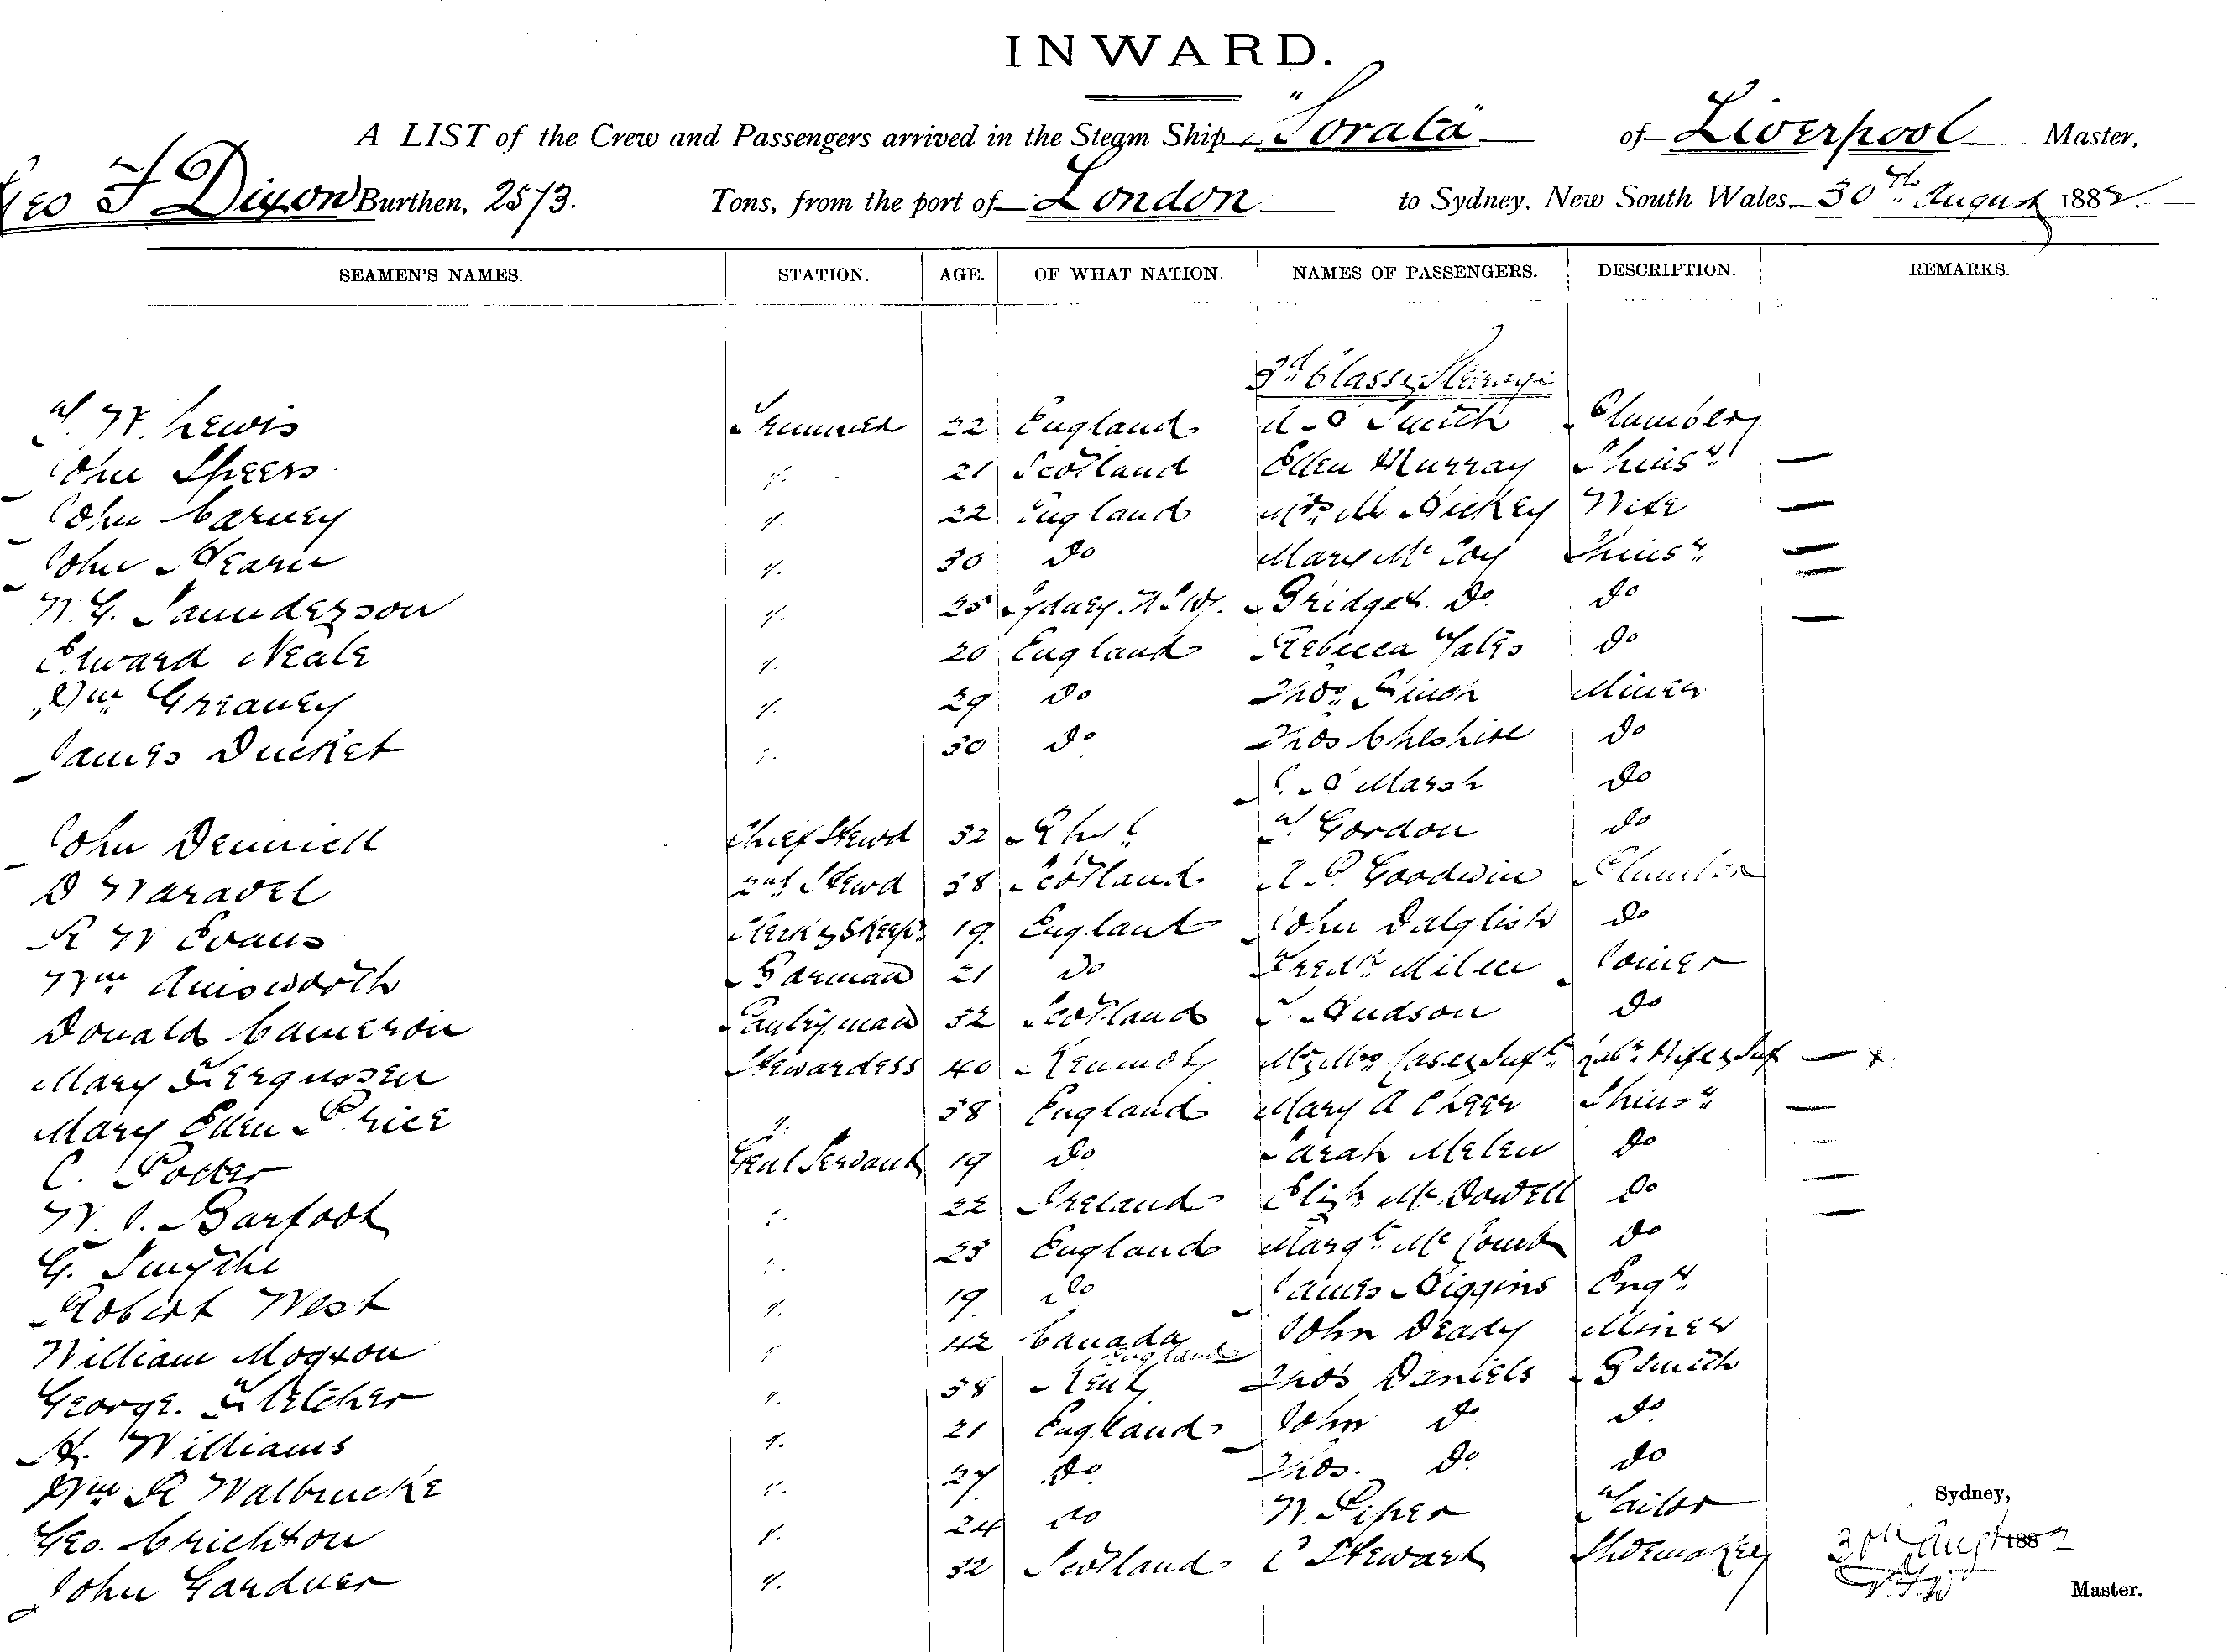 INWARD.
A LIST of the Crew and Passengers arrived in the Steam Ship "Sorata" of Liverpool Master,
Geo F Dixon Burthen, 2573. Tons, from the port of London to Sydney, New South Wales, 30th August 1882.
SEAMEN'S NAMES. STATION. AGE. OF WHAT NATION. NAMES OF PASSENGERS. DESCRIPTION. REMARKS.
3rd Class & Steerage
T. W. Lewis Trimmer 22 England Smith Plumber
John Speers ". 21 Scotland Ellen Murray Spinsr
John Carney ". 22 England Mrs Hickey Wife
John Hearn ". 30 Do Mary McCoy Spinsr
W. G. Saunderson ". 25 Sydney. N.S.W. Bridget Do. Do
Edward Neale ". 20 England Rebecca Yates Do
Wm Greaney ". 29 Do Thos Finch Miner
James Ducket ". 30 Do Thos Cheshire Do
Marsh Do
John Dennill Chief Stewd 32 T. Gordon Do
D 2nd Stewd 38 Scotland Goodwin Plumber
R W Evans Clerk & SKeepr 19. England John Dalglish Do
Wm Ainsworth Barman 21 Do Fredk Milne Joiner
Donald Cameron Pantryman 32 Scotland T. Hudson Do
Mary Ferguson Stewardess 40 Mr & Mrs Casey Inft Labr Wife & Inf
Mary Ellen Price ". 38 England Mary A Spinsr
C. Potter Genl Servant 19 Do Sarah Do
W. J. Barfoot ". 22 Ireland Elizh McDowell Do
G. Smythe ". 23 England Margt McCourt Do
Robert West ". 19. Do James Higgins Engr
William Mogson ". 42 Canada John Deady Miner
George. Fletcher ". 38 Kent England Thos Daniels BSmith
H. Williams ". 21 England John Do Do
Wm R Walbrucke ". 27 Do Thos. Do Do
Geo. Crichton ". 24 Do W. Piper Tailor
John Gardner ". 32 Scotland C Stewart Shoemaker
Sydney,
30th Augt 1882
Master.